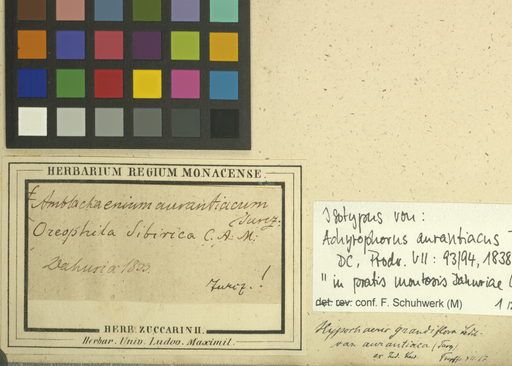 HERBARIUM REGIUM MONACENSE.
Amblachaenium aurantiacum
Turcz.
Oreophila Sibirica C. A. M.
Dahuria
Turcz. !
HERB. ZUCCARINII.
Herbar. Univ. Ludov. Maximil.
Isotypus von:
Achyrophorus aurantiacus
DC. Prodr. VII: 93/94, 1838
" in pratis montosis Dahuriae
det. rev. conf. F. Schuhwerk (M)
Hypochaeris grandiflora
var. aurantiaca